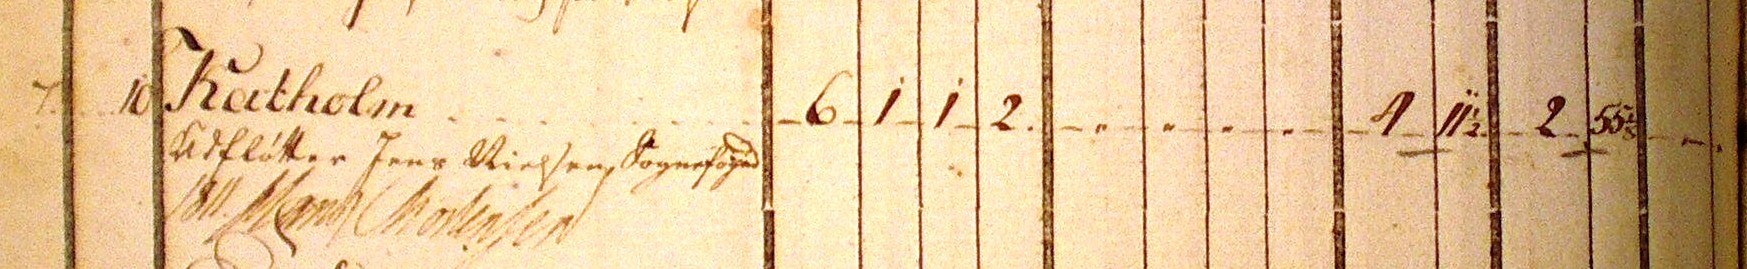 7. 10 Katholm 6 1 1 2. " " " " 4 11½ 2 55⅛
Udflötter Jens Nielsen, Sognefoged
1811. Hans Mortensen